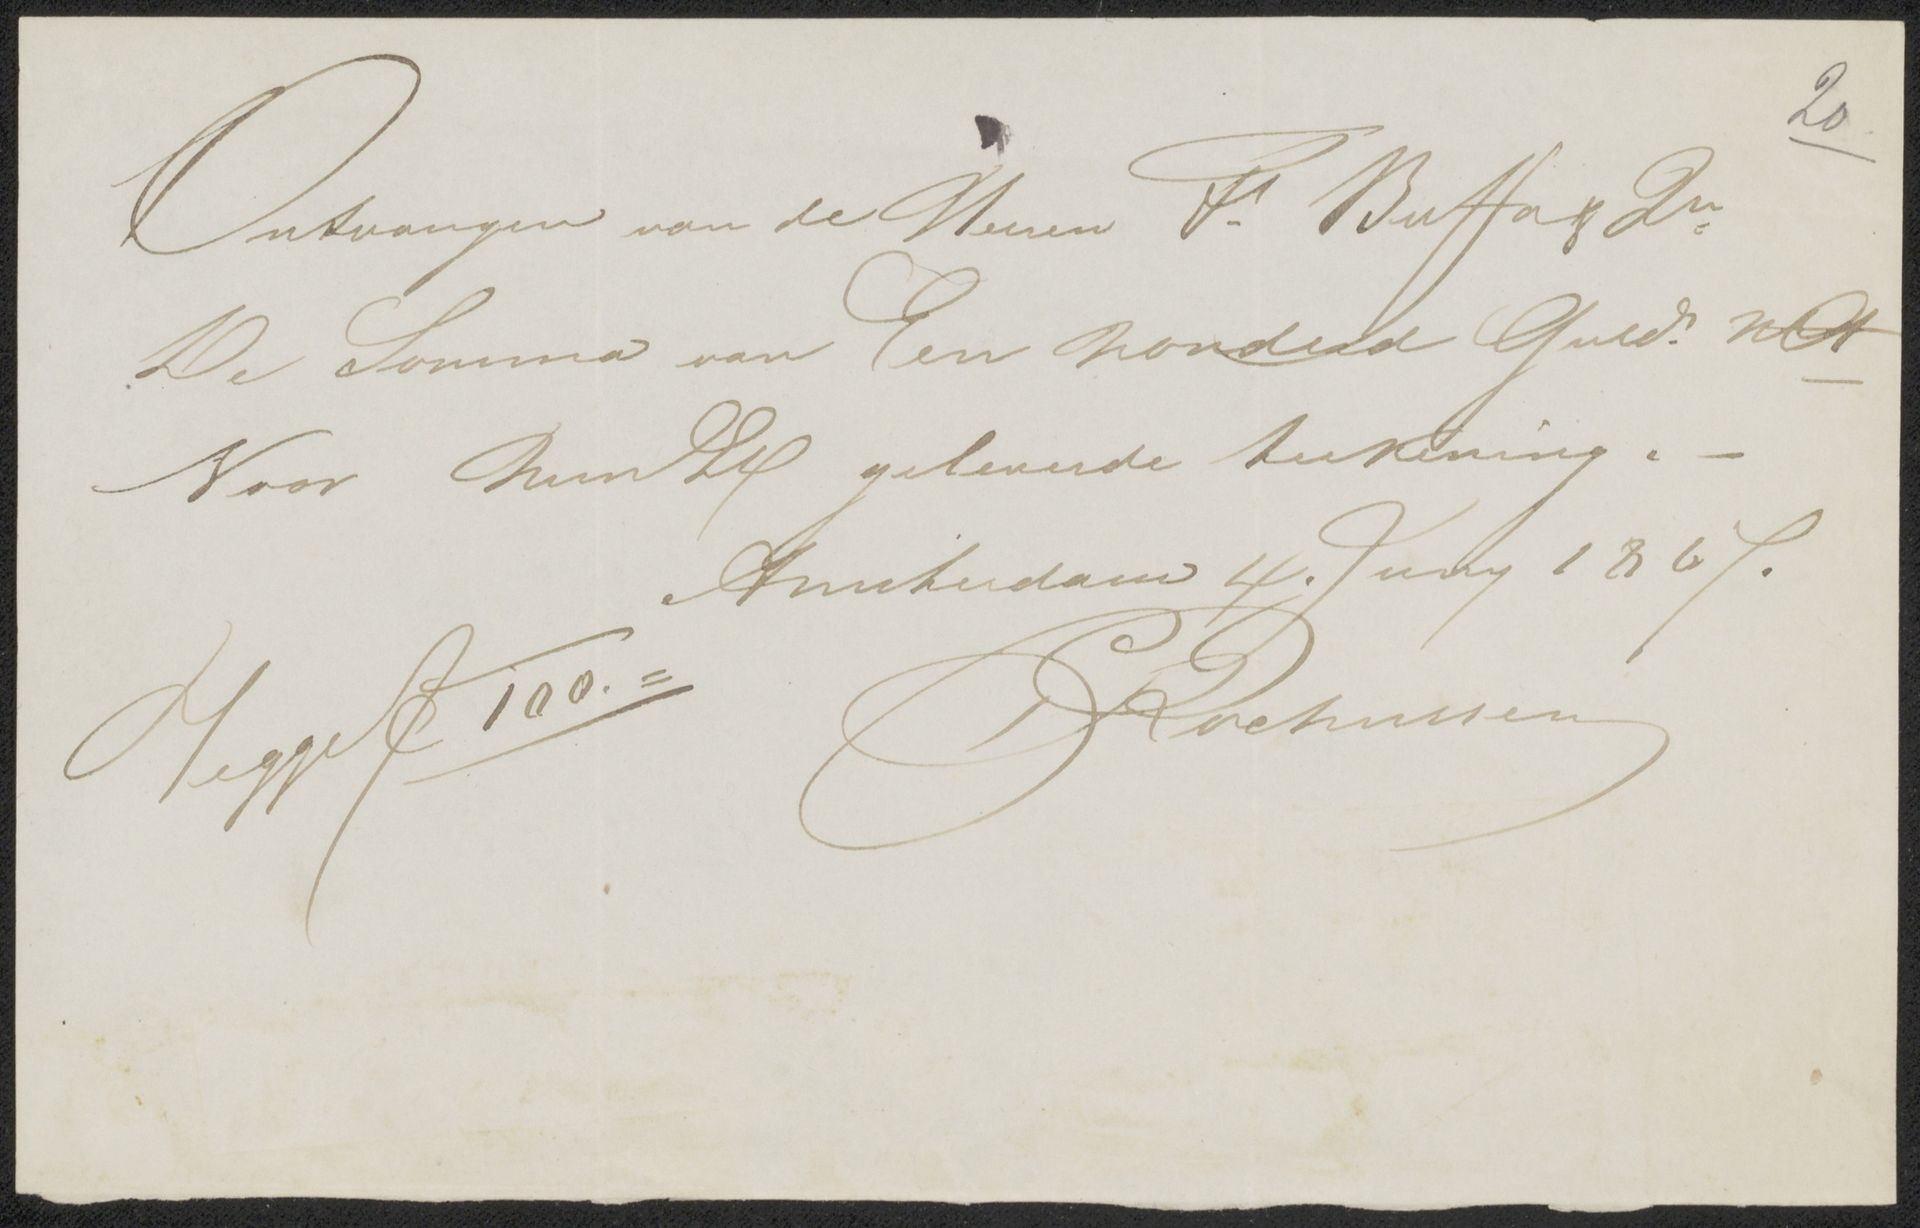 20
Ontvangen van de Heeren Fs. Buffa & Zn
De Somma van Een honderd Guld. net
Voor hun Ed geleverde teekening. -
Amsterdam 4. Juny 1867.
Zegge f 100. =
C Rochussen